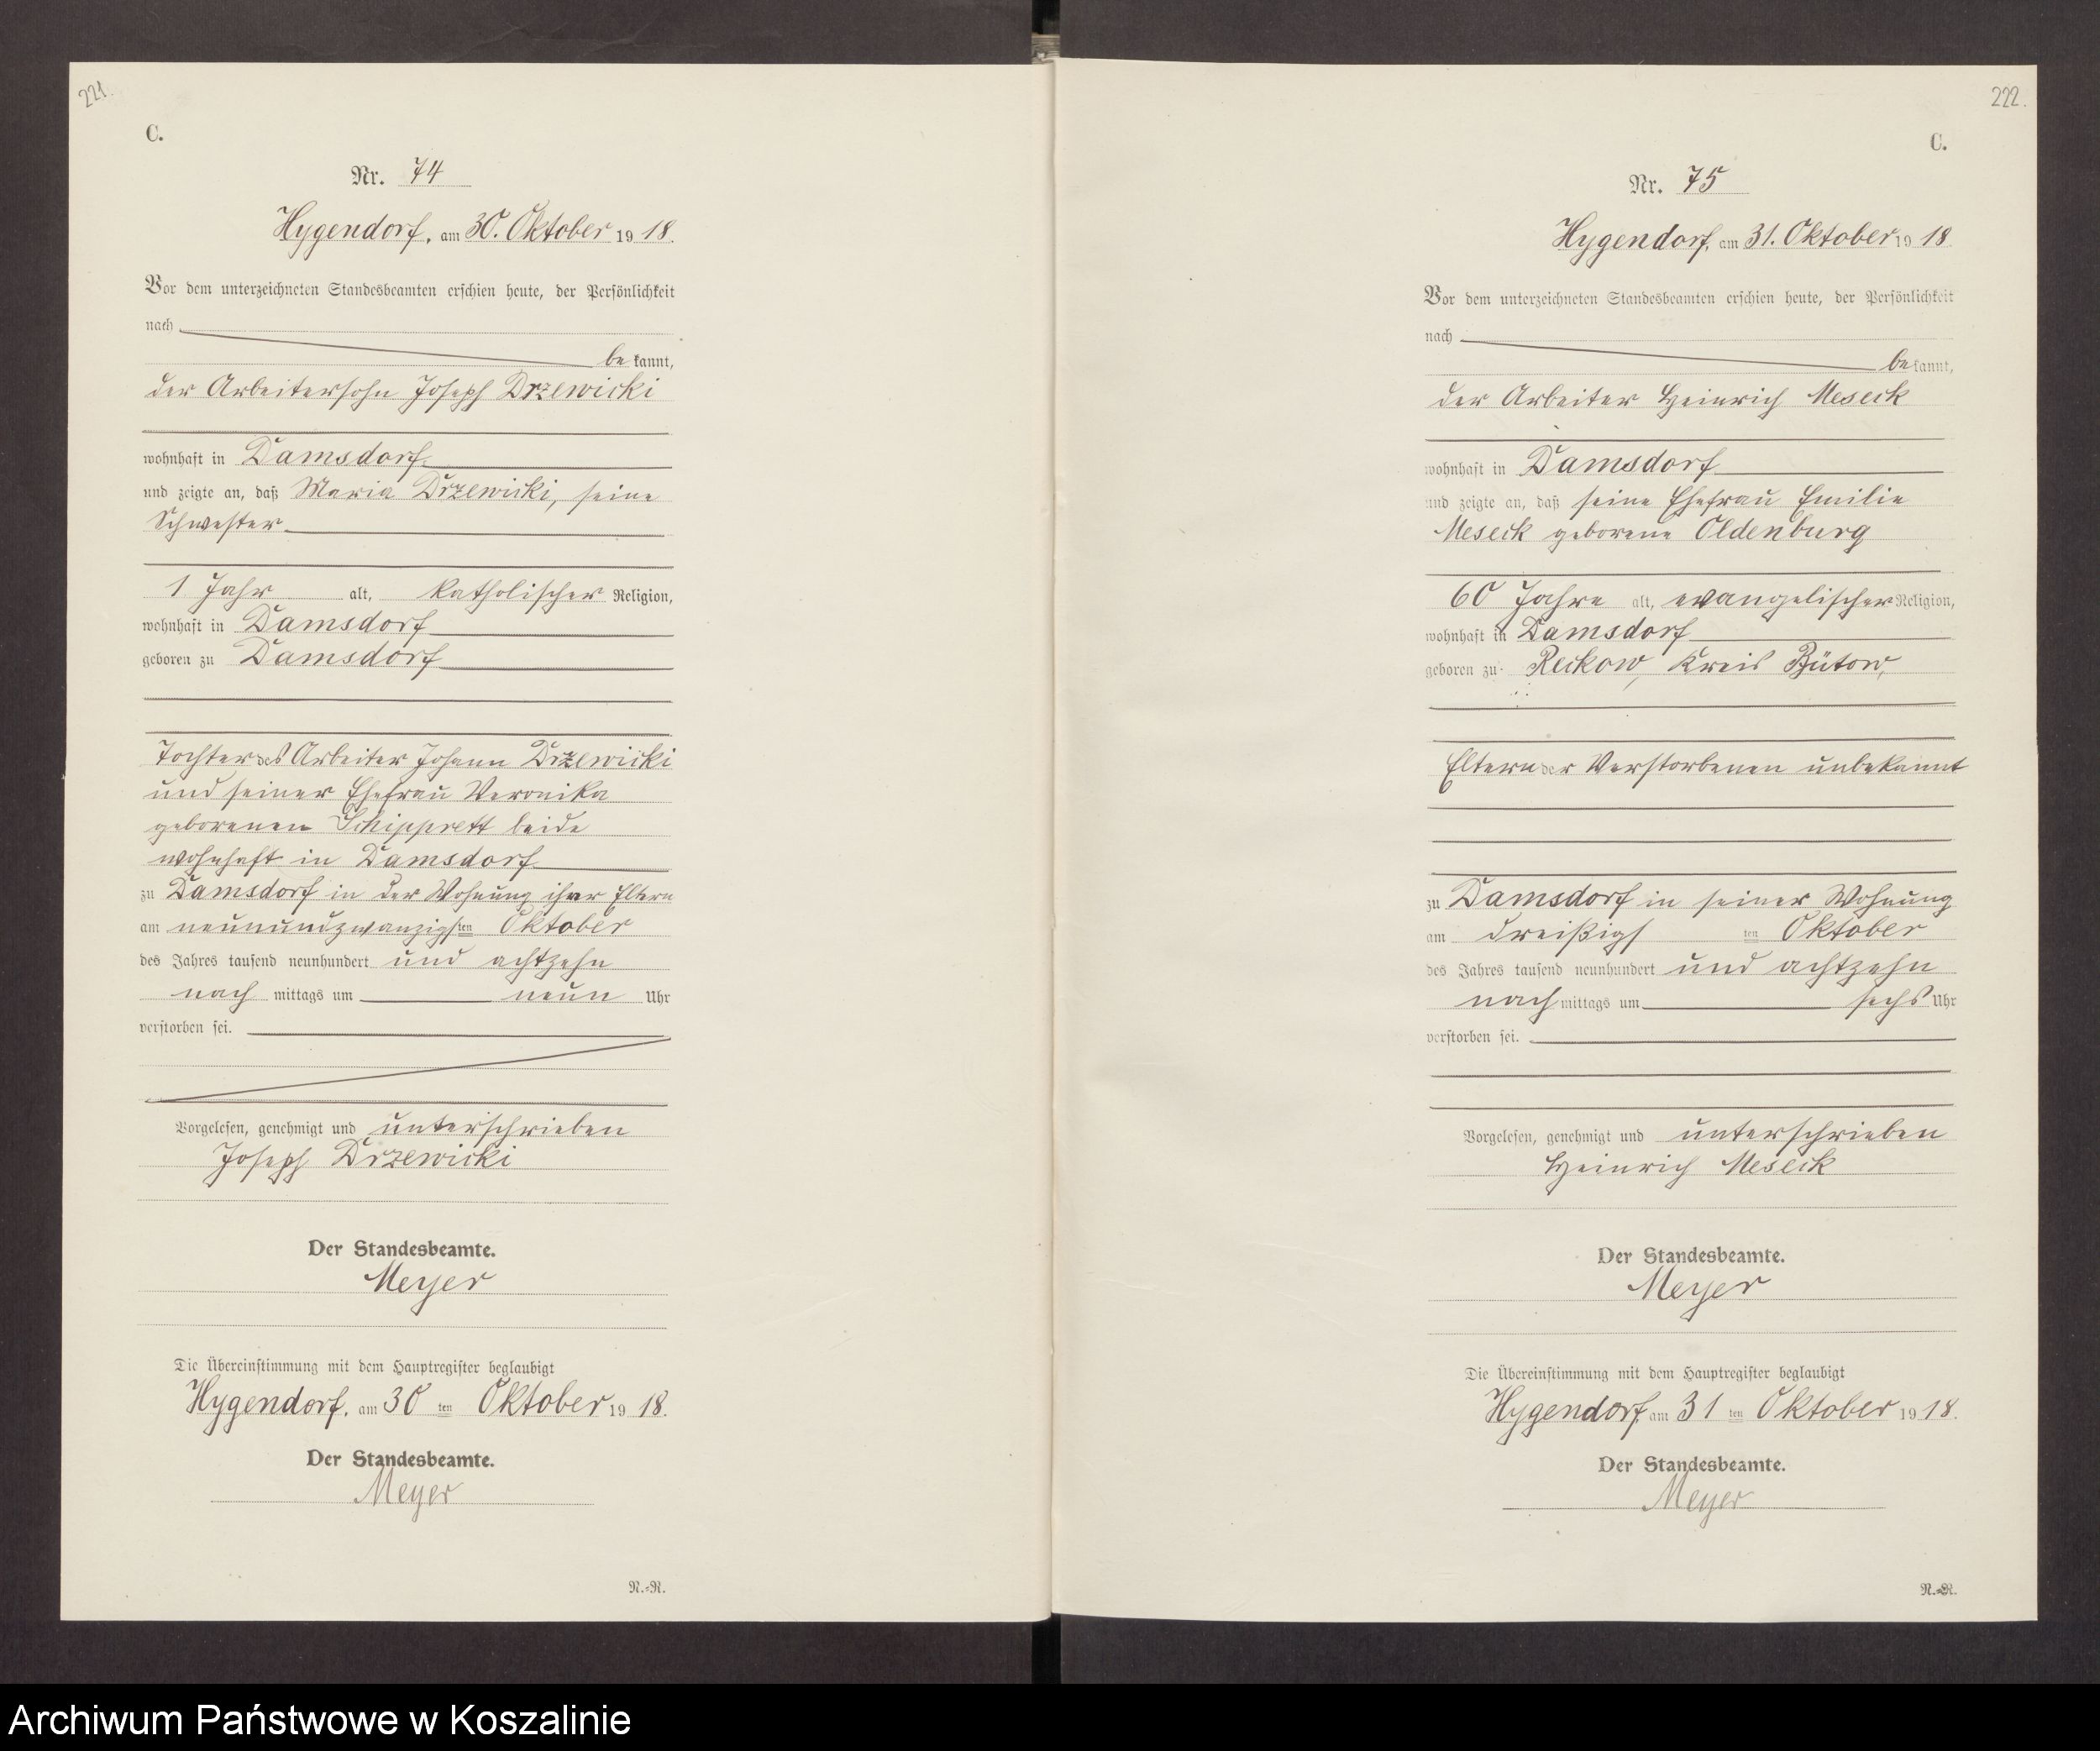 221.
C.
Nr. 74
Hygendorf, am 30. Oktober 1918.
Vor dem unterzeichneten Standesbeamten erschien heute, der Persönlichkeit
nach
be kannt,
der Arbeitersohn Joseph Drzewicki
wohnhaft in Damsdorf
und zeigte an, daß Maria Drzewicki, seine
Schwester
1 Jahr alt, katholischer Religion,
wohnhaft in Damsdorf
geboren zu Damsdorf
Tochter des Arbeiter Johann Drzewicki
und seiner Ehefrau Veronika
geborenen Schipprett beide
wohnhaft in Damsdorf
zu Damsdorf in der Wohnung ihrer Eltern
am neunundzwanzigsten Oktober
des Jahres tausend neunhundert und achtzehn
nach mittags um neun Uhr
verstorben sei.
Vorgelesen, genehmigt und unterschrieben
Joseph Drzewicki
Der Standesbeamte.
Meyer
Die Übereinstimmung mit dem Hauptregister beglaubigt
Hygendorf, am 30 ten Oktober 1918.
Der Standesbeamte.
Meyer
N.=R.
222.
C.
Nr. 75
Hygendorf, am 31. Oktober 1918
Vor dem unterzeichneten Standesbeamten erschien heute, der Persönlichkeit
nach
be kannt,
der Arbeiter Heinrich Meseck
wohnhaft in Damsdorf
und zeigte an, daß seine Ehefrau Emilie
Meseck geborene Oldenburg
60 Jahre alt, evangelischer Religion,
wohnhaft in Damsdorf
geboren zu Reckow, Kreis Bütow,
Eltern der Verstorbenen unbekannt
zu Damsdorf in seiner Wohnung
am dreißigs ten Oktober
des Jahres tausend neunhundert und achtzehn
nach mittags um sechs Uhr
verstorben sei.
Vorgelesen, genehmigt und unterschrieben
Heinrich Meseck
Der Standesbeamte.
Meyer
Die Übereinstimmung mit dem Hauptregister beglaubigt
Hygendorf, am 31 ten Oktober 1918.
Der Standesbeamte.
Meyer
N.=R.
Archiwum Państwowe w Koszalinie